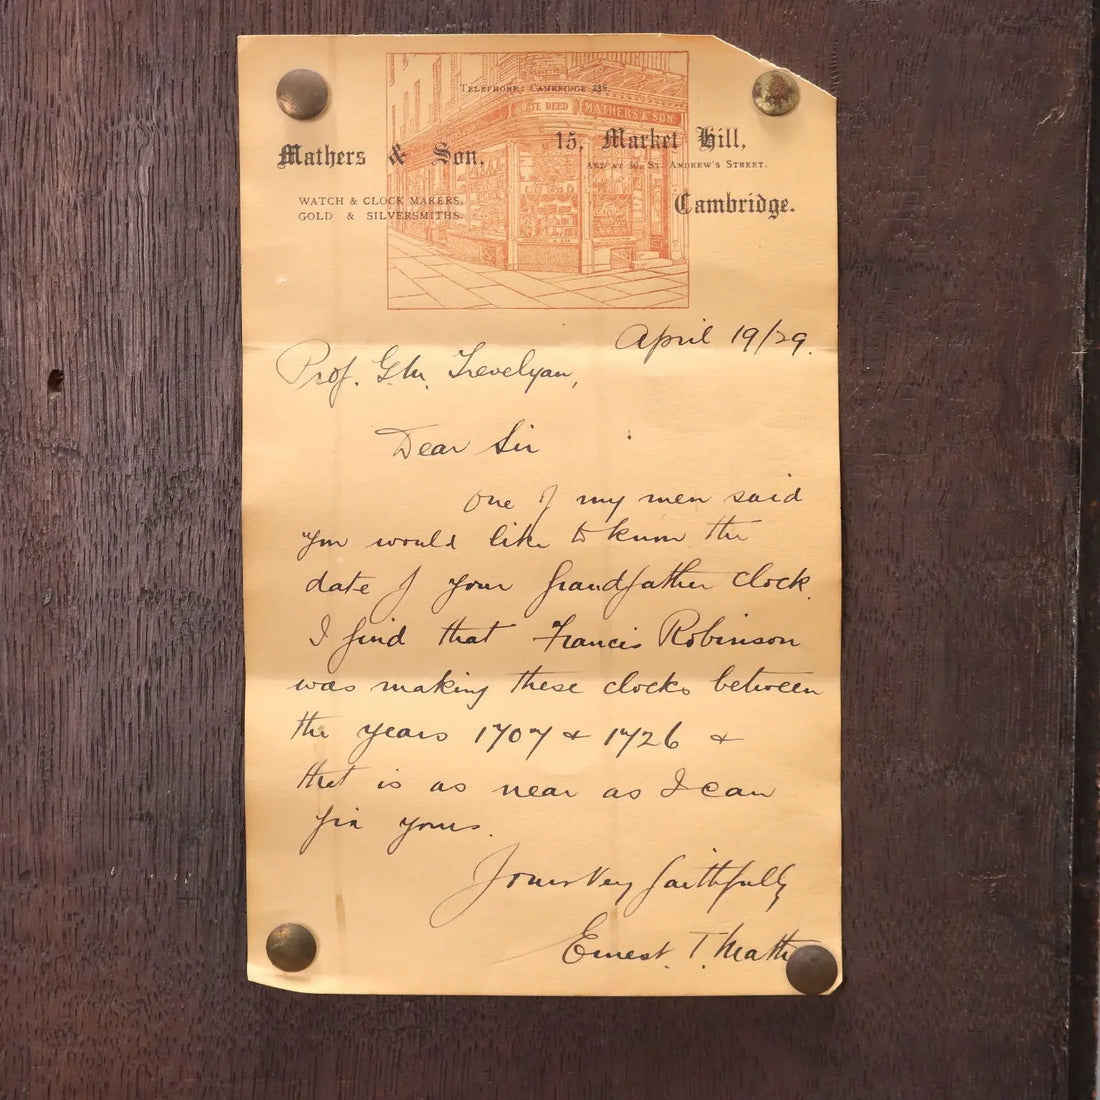 TELEPHONE: CAMBRIDGE 238.
TE REED MATHERS & SON
Mathers & Son,
15, Market Hill,
AND AT 30, ST. ANDREW'S STREET.
WATCH & CLOCK MAKERS.
GOLD & SILVERSMITHS.
Cambridge.
April 19/29.
Prof. G.M. Trevelyan,
Dear Sir
One of my men said
you would like to know the
date of your Grandfather Clock.
I find that Francis Robinson
was making these clocks between
the years 1707 & 1726 &
that is as near as I can
fix yours.
Yours Very faithfully
Ernest. T. Math